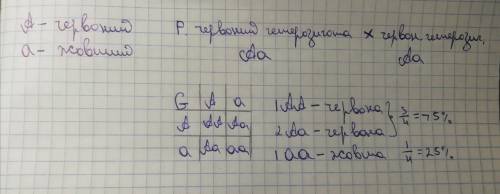 A - червоний
a - жовтий
P. червоний гетерозигота × червон. гетерозиг.
Aa Aa
G A a
A AA Aa
a Aa aa
1 AA - червона
2 Aa - червона
} 3/4 = 75%
1 aa - жовта 1/4 = 25%